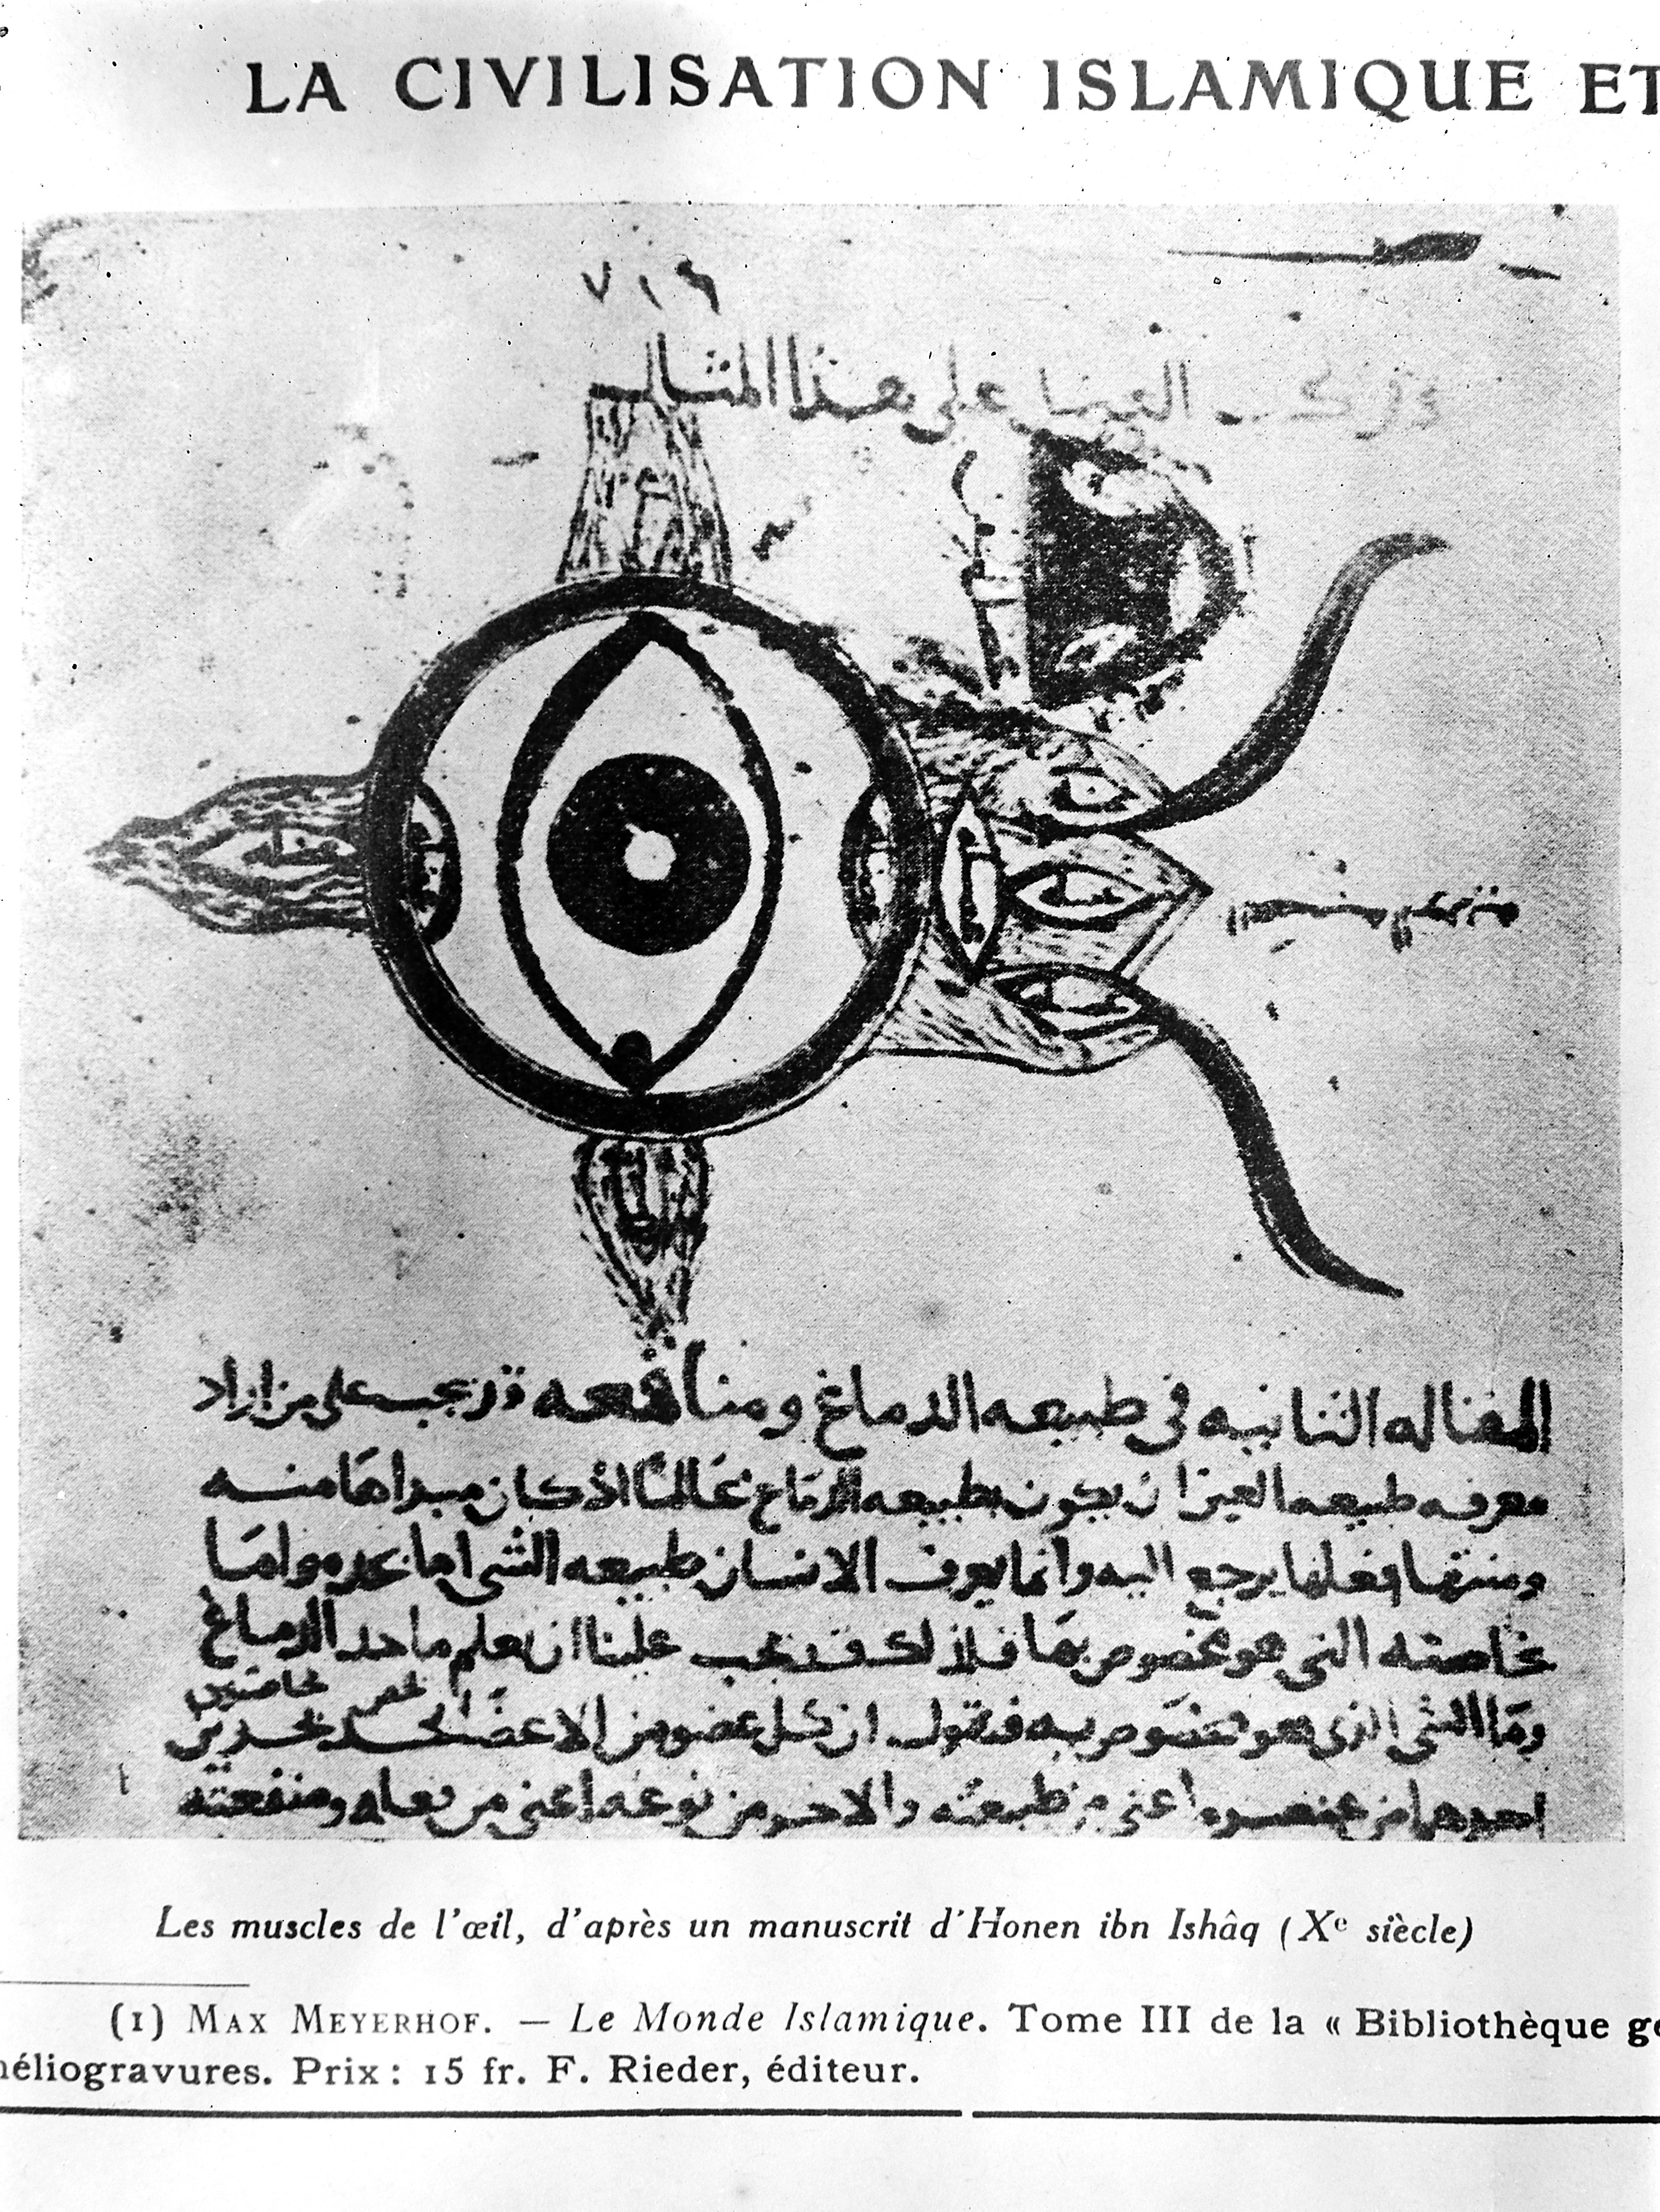 LA CIVILISATION ISLAMIQUE ET
على هذا المثال
عضله
عضله
عضله
المقاله الثانيه في طبيعه الدماغ ومنافعه قد يجب على من اراد
معرفه طبيعه العين ان يكون بطبيعه الدماغ عالمًا اذ كان مبداها منه
يرجع اليه وانما يعرف الانسان طبيعه الشي اما بحده واما
بخاصته التي هو مخصوص بها فلذلك قد يجب علينا ان نعلم ما حد الدماغ
وما الشي الذي هو مخصوص به فنقول ان كل عضو من الاعضا يحد بحدين
احدهما من عنصره اعني من طبيعته والاخر من اعني من فعله ومنفعته
Les muscles de l'œil, d'après un manuscrit d'Honen ibn Ishâq (Xe siècle)
(1) MAX MEYERHOF. — Le Monde Islamique. Tome III de la « Bibliothèque gé
héliogravures. Prix : 15 fr. F. Rieder, éditeur.